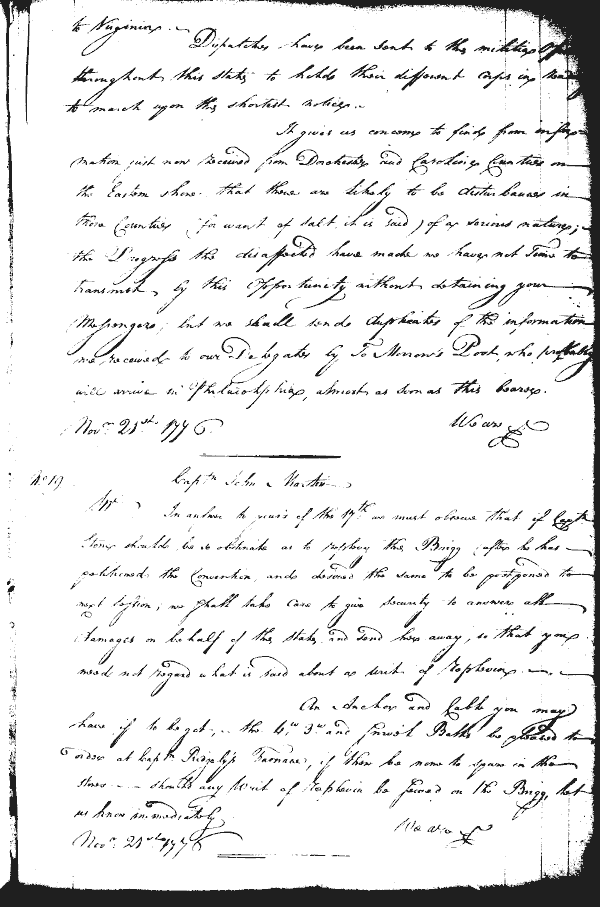 to Virginia.
Dispatches have been sent to the militia
throughout this state to hold their different corps in
to march upon the shortest notice.
It gives us concern to find from infor-
mation just now received from Dorchester and Caroline Counties on
the Eastern shore that there are likely to be disturbances in
those Counties (for want of salt, it is said) of a serious nature;
the Progress the disaffected have made we have not Time to
transmit by this Opportunity without detaining your
Messengers; but we shall send duplicates of the information
we received to our Delegates by To Morrow's Post, who probably
will arrive in Philadelphia, almost as soon as this bearer.
Novr. 21st. 1776. We are &
No. 19 Captn. John Martin
Sir In answer to yours of the 17th. we must observe that if Captn.
Stone should be so obstinate as to replevy the Brigg (after he has
petitioned the Convention, and desired the same to be postponed to
next session; we shall take care to give security to answer all
damages on behalf of the state, and send her away, so that you
need not regard what is said about a writ of Replevin.
An Anchor and Cable you may
have if to be got, the 4, 3 and Balls be pleased to
order at Captn. Ridgely's Furnace, if there be none to spare in the
stores should any Writ of Replevin be served on the Brigg, let
us know immediately
Novr. 21st. 1776 We are &